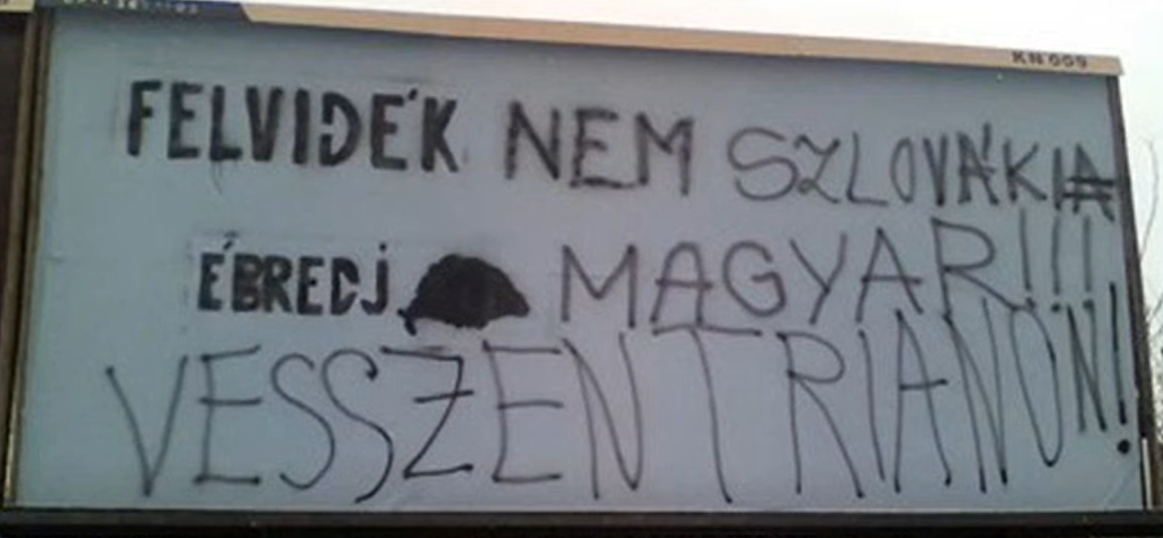 KN 009
FELVIDÉK NEM SZLOVÁKIA
ÉBREDJ MAGYAR!!!
VESSZEN TRIANON!